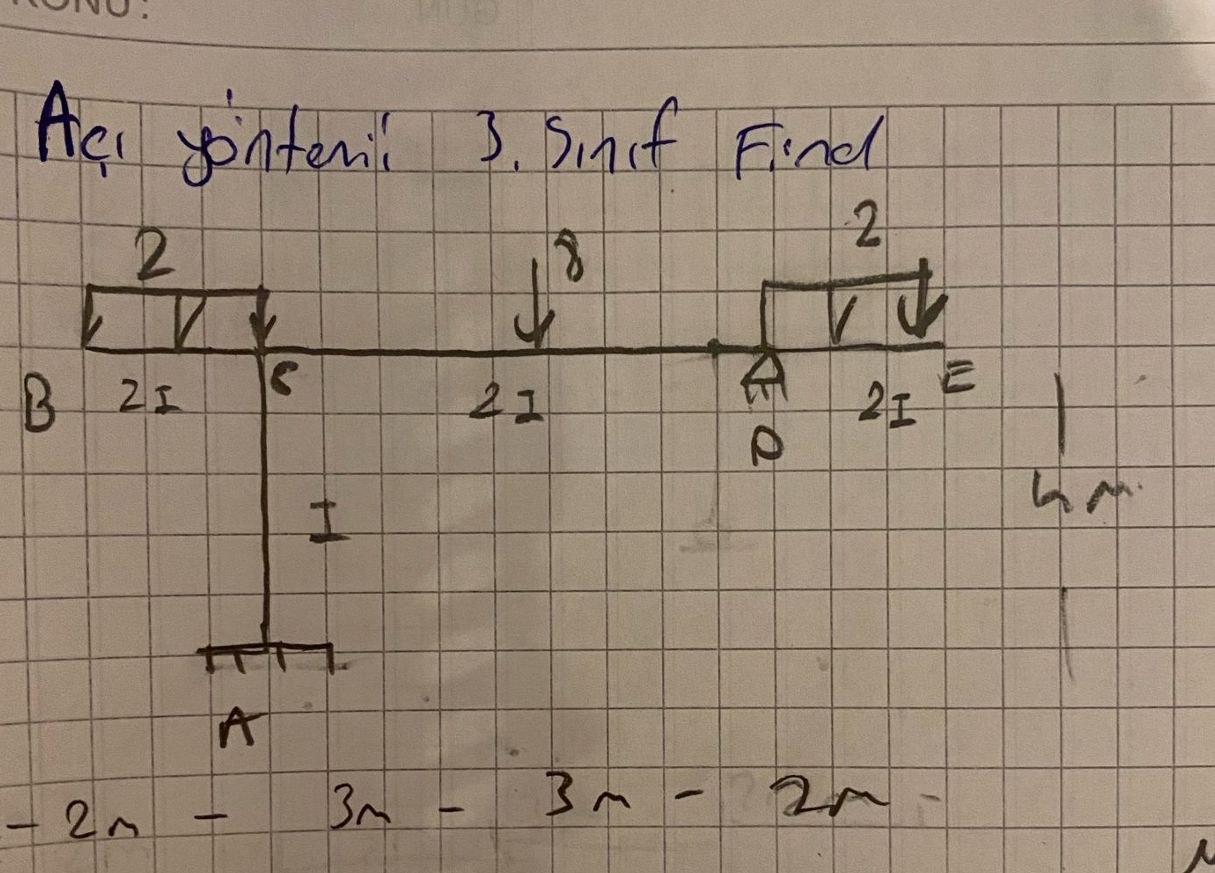 KONU:
Açı yöntemi 3. Sınıf Final
2 8 2
B 2I C 2I D 2I E
I
4 m
A
- 2m - 3m - 3m - 2m -